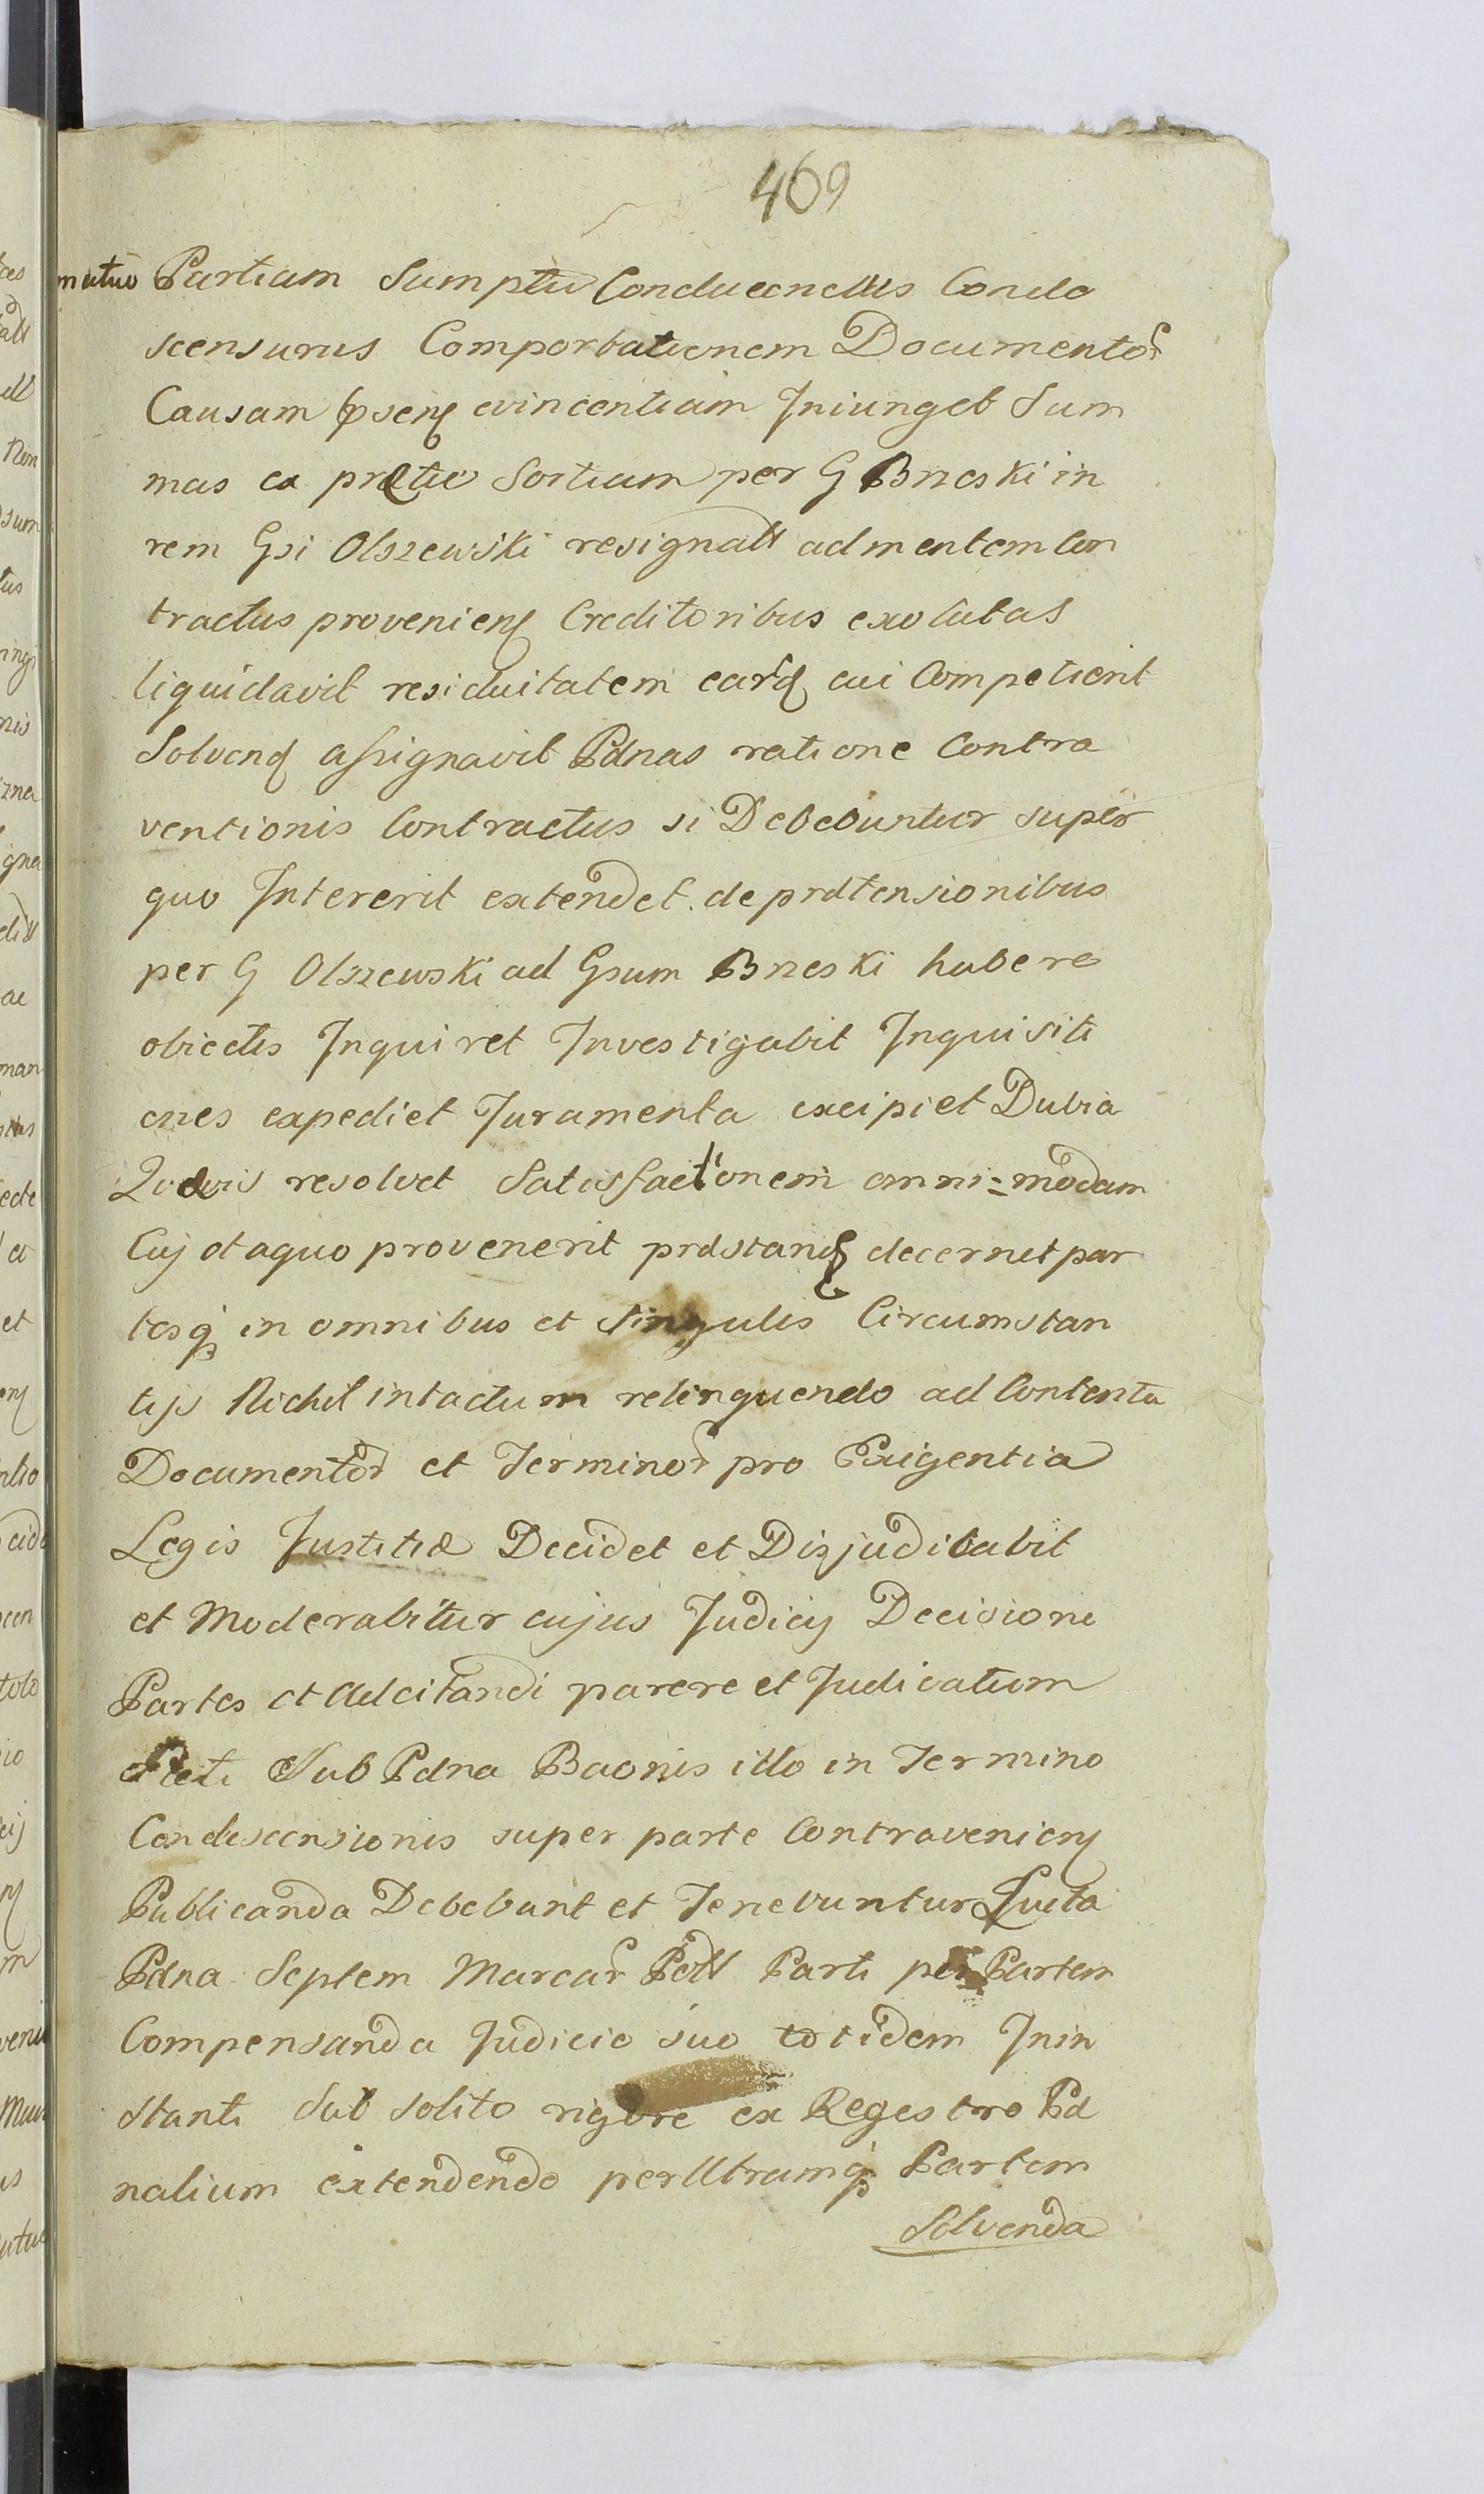 469
mutuo Partium Sumptu Conducendus Conde
scensurus Comportationem Documentor
Causam pſenſ evincentium Injunget Sum
mas ex prætio Sortium per G Brzeski in
rem Gsi Olszewski resignatt ad mentem Con
tractus provenienſ Creditoribus exolutas
liquidavit residuitatem earſ cui Competierit
Solvenſ assignavit Pænas ratione Contra
ventionis Contractus si Debebuntur super
quo Intererit extendet de prætensionibus
per G Olszewski ad Gsum Brzeski habere
obiectis Inquiret Investigabit Inquisiti
ones expediet Juramenta excipiet Dubia
Quævis resolvet Satisfactionem omni=modam
Cuj et a quo provenerit præstanſ decernet par
tesq in omnibus et singulis Circumstan
tijs Nichil intactum relinquendo ad Contenta
Documentor et Terminor pro Exigentia
Legis Justitiæ Decidet et Disjudicabit
et Moderabitur cujus Judicij Decisioni
Partes et Adcitandi parere et Judicatum
Pati Sub Pæna Baonis illo in Termino
Condescensionis super parte Contravenienſ
Publicanda Debebunt et Tenebuntur Lucta
Pæna Septem Marcar Poll Parti per Partem
Compensanda Judicio suo totidem Inin
stanti Sub solito rigore ex Regestro Pæ
nalium extendendo per Utramq Partem
Solvenda